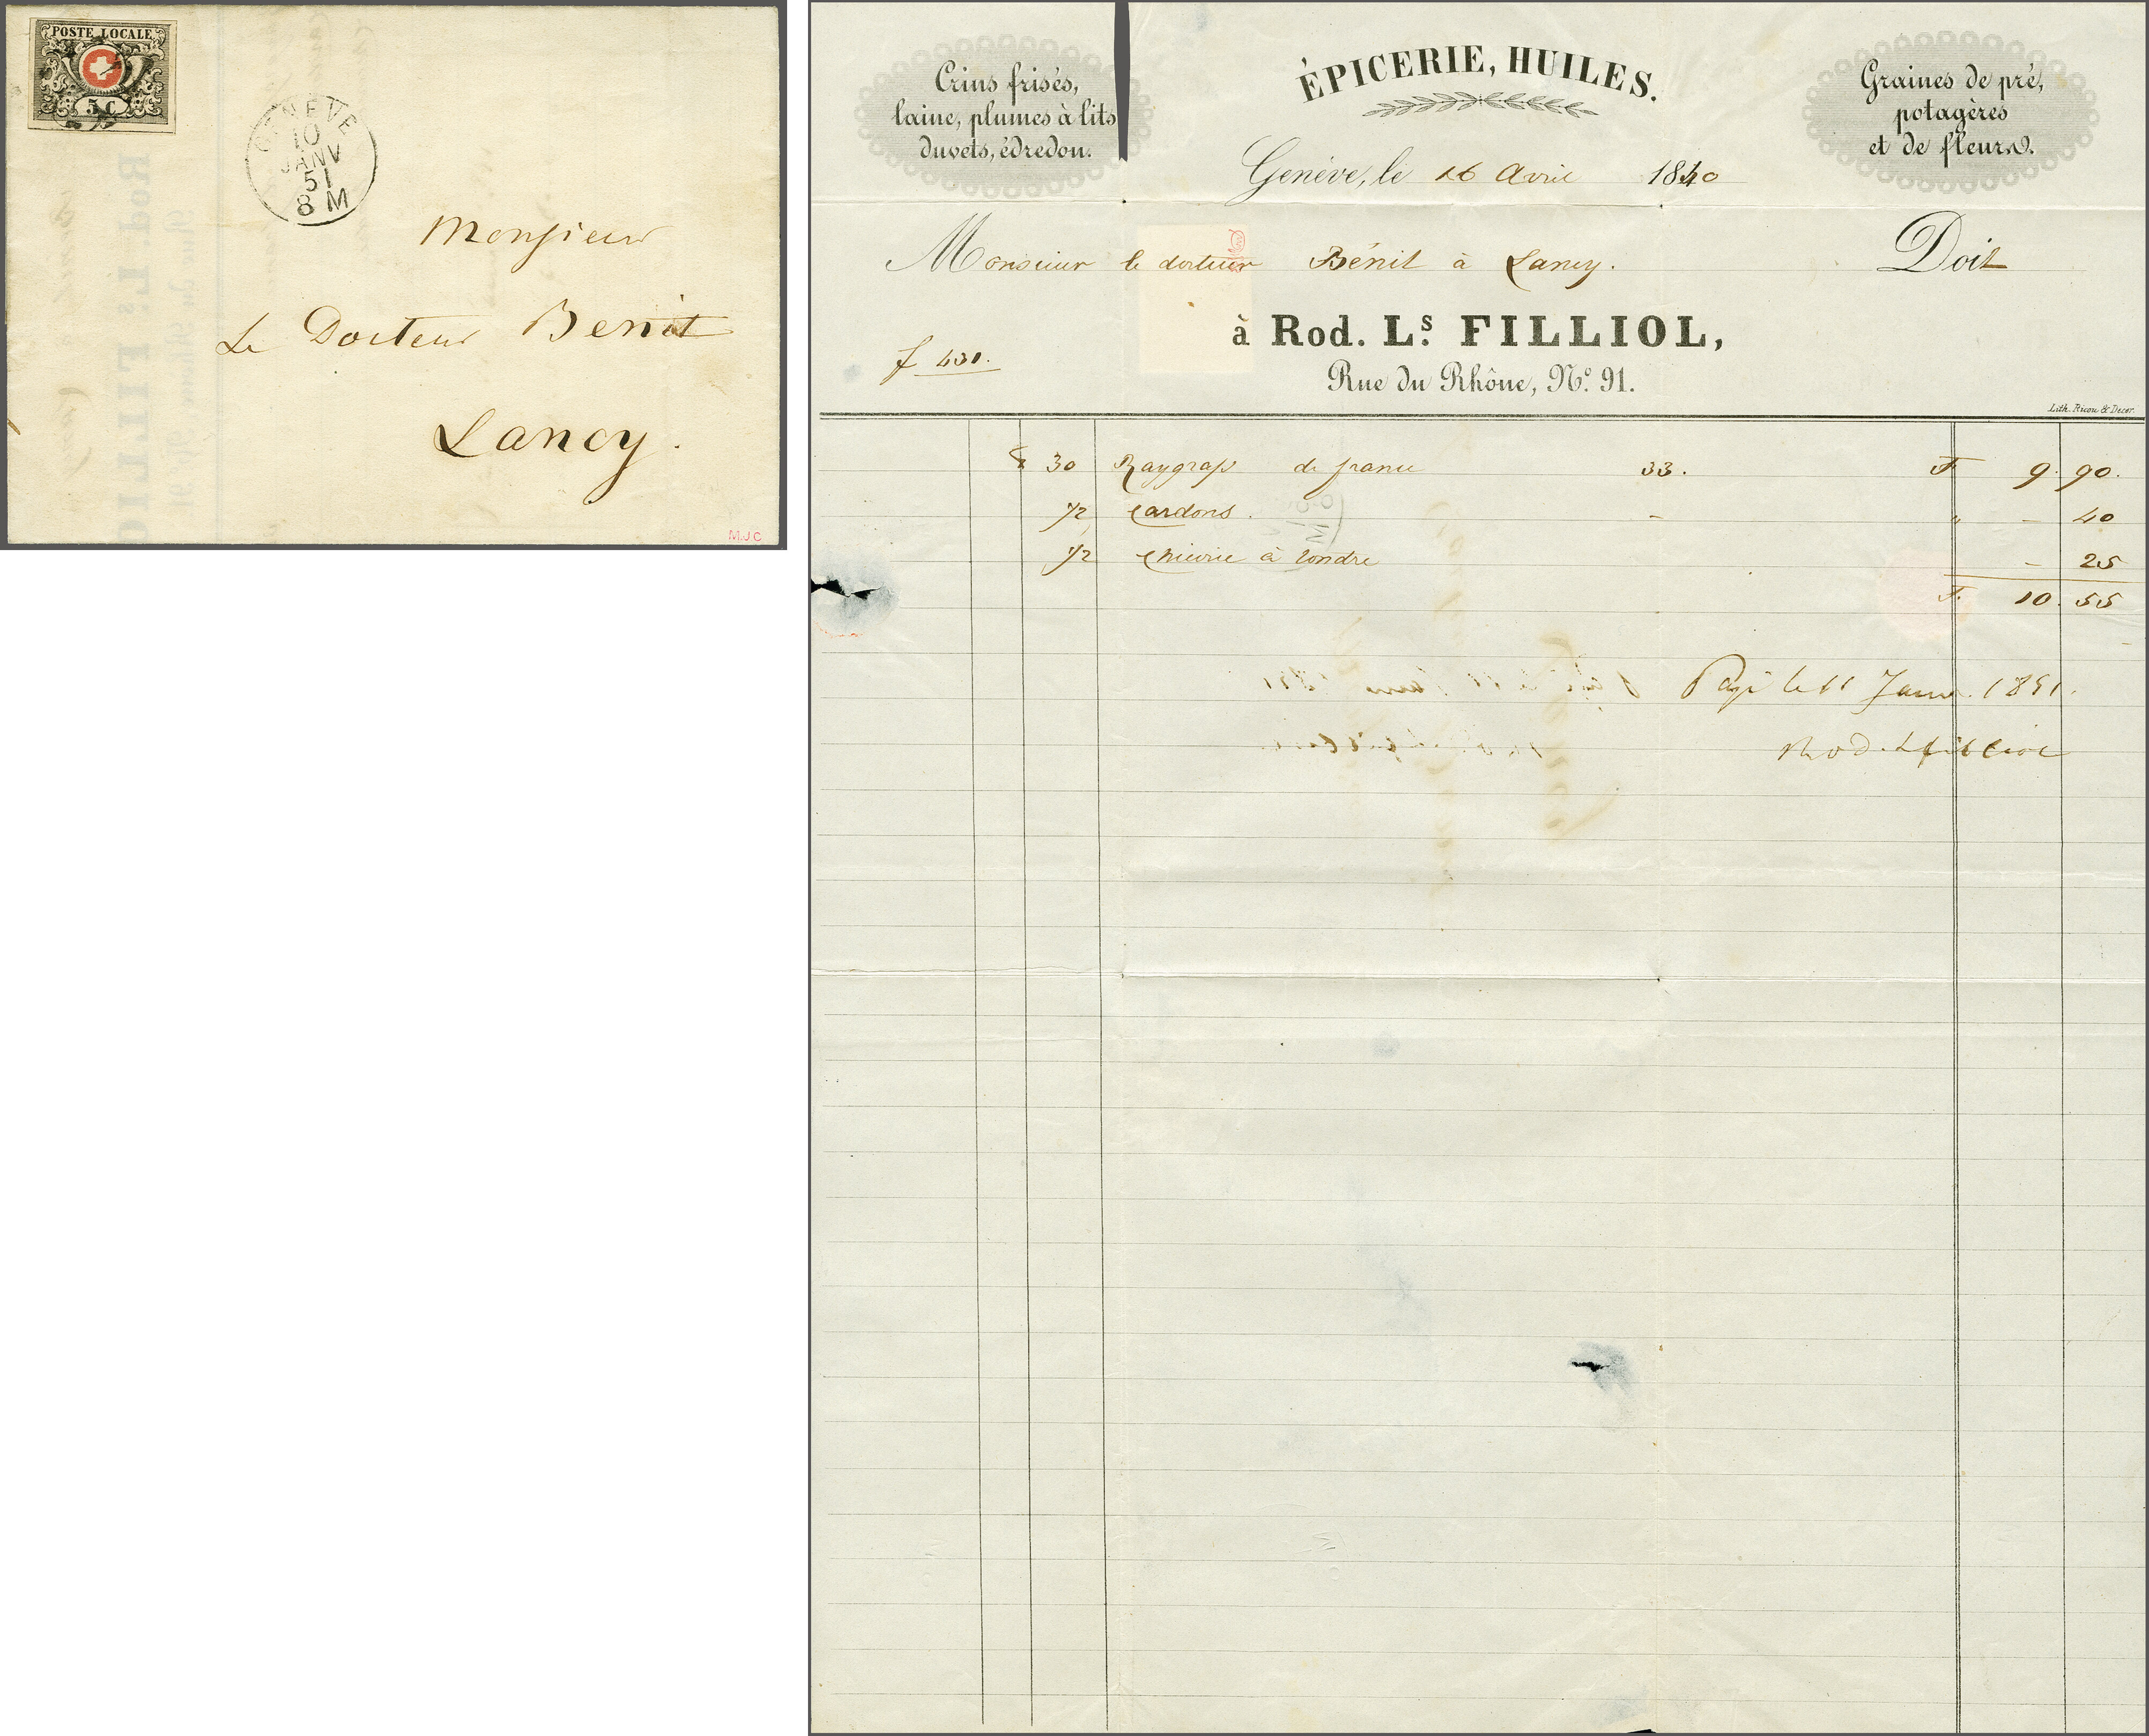 POSTE LOCALE
5 C
GENÈVE
10
JANV
51
8 M
Monsieur
Le Docteur Benit
Lancy.
M.J.C
Crins frisés,
laine, plumes à lits
duvets, édredon.
ÉPICERIE, HUILES.
Graines de pré,
potagères
et de fleurs.
Genève, le 16 Avril 1840
Monsieur le docteur Bénit à Lancy. Doit
à Rod. Ls. FILLIOL,
f 430.
Rue du Rhône, No. 91.
Lith. Ricou & Decor.
30 Raygrass de france 33. F 9. 90.
1/2 Cardons. - " - 40
1/2 à tondre - 25
F. 10. 55
Payé le 11 Janv. 1851.
Rod. Ls filliol